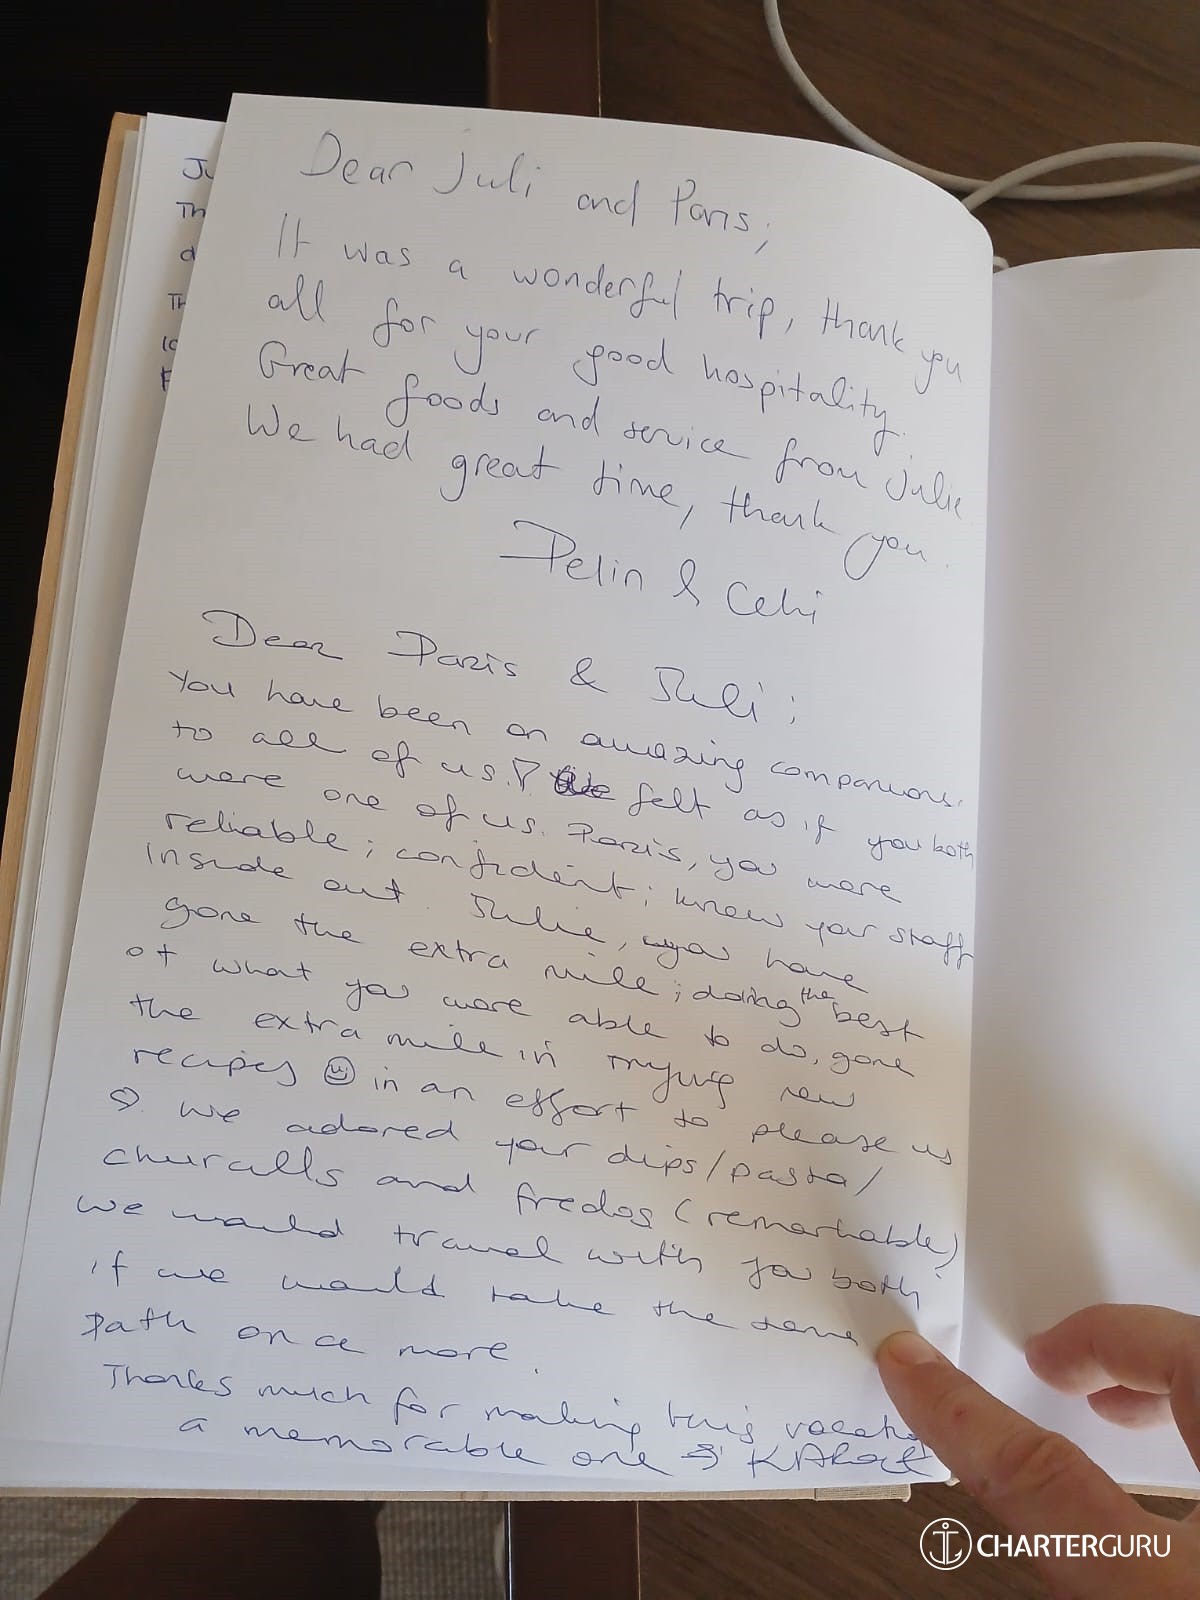 Dear Juli and Paris;
It was a wonderful trip, thank you
all for your good hospitality.
Great foods and service from Julie
We had great time, thank you.
Pelin & Cehi
Dear Paris & Juli;
You have been an amazing companions.
to all of us. We felt as if you both
were one of us. Paris, you were
reliable; confident; knew your staff
inside out. Julie, you have
gone the extra mile; doing the best
of what you were able to do, gone
the extra mile in trying new
recipes in an effort to please us
We adored your dips/pasta/
and fredos (remarkable)
We would travel with you both
if we would take the same
path once more.
Thanks much for making this
a memorable one
Ju
Th
d
Th
F
CHARTERGURU